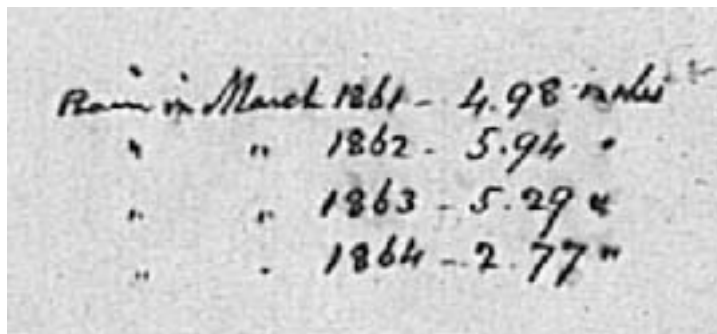 Rain in March 1861 - 4.98 inches
" " 1862 - 5.94 "
" " 1863 - 5.29 "
" " 1864 - 2.77 "